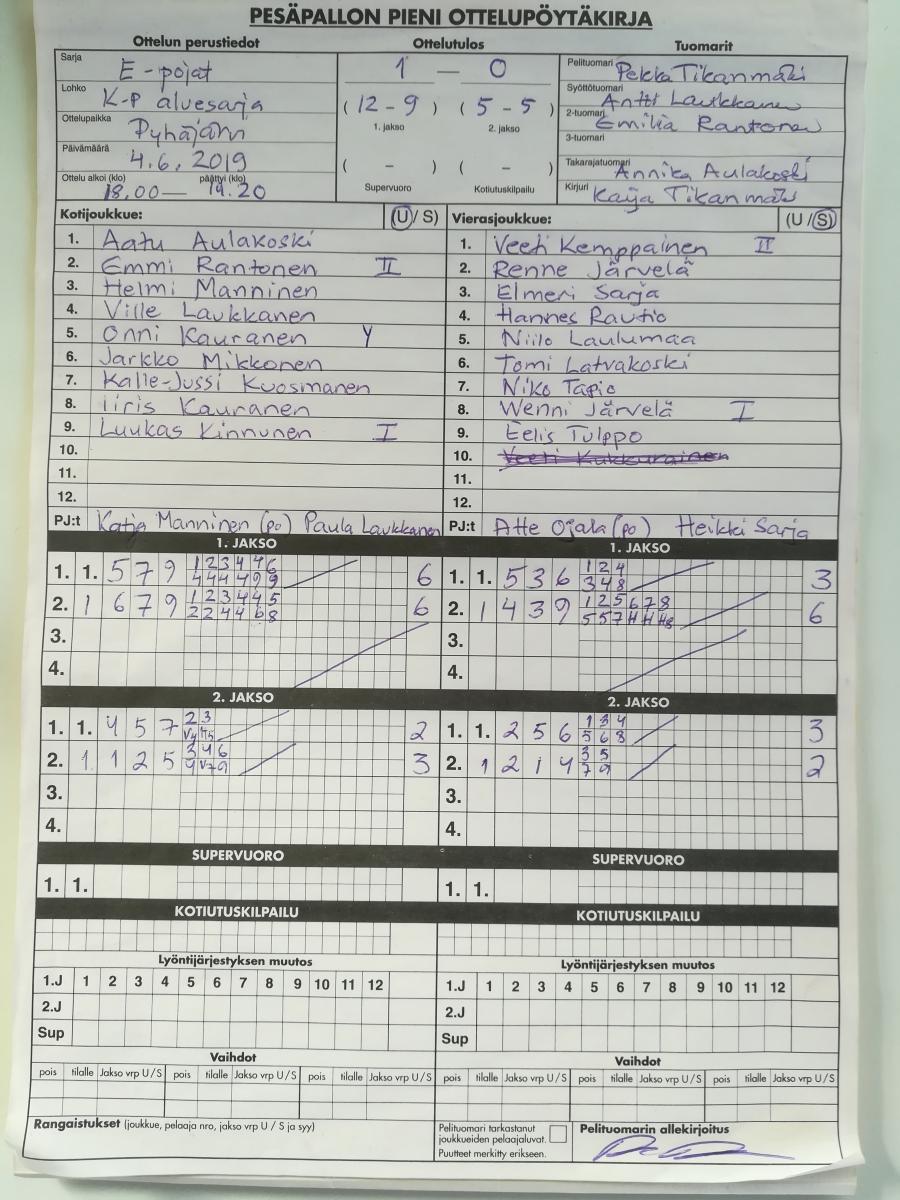 PESÄPALLON PIENI OTTELUPÖYTÄKIRJA
Ottelun perustiedot Ottelutulos Tuomarit
Sarja E-pojat 1 — 0 Pelituomari Pekka Tikanmäki
Lohko K-P aluesarja (12 - 9) (5 - 5) Syöttötuomari Antti Laukkanen
1. jakso 2. jakso 2-tuomari Emilia Rantonen
Ottelupaikka Pyhäjärvi 3-tuomari
Päivämäärä 4.6.2019 ( - ) ( - ) Takarajatuomari Annika Aulakoski
Ottelu alkoi (klo) 18.00 — päättyi (klo) 19.20 Supervuoro Kotiutuskilpailu Kirjuri Kaija Tikanmäki
Kotijoukkue: (U/S) Vierasjoukkue: (U/S)
1. Aatu Aulakoski 1. Veeti Kemppainen II
2. Emmi Rantonen II 2. Renne Järvelä
3. Helmi Manninen 3. Elmeri Sarja
4. Ville Laukkanen 4. Hannes Rautio
5. Onni Kauranen Y 5. Niilo Laulumaa
6. Jarkko Mikkonen 6. Tomi Latvakoski
7. Kalle-Jussi Kuosmanen 7. Niko Tapio
8. Iiris Kauranen 8. Wenni Järvelä I
9. Luukas Kinnunen I 9. Eelis Tulppo
10. 10.
11. 11.
12. 12.
PJ:t Katja Manninen (po) Paula Laukkanen PJ:t Atte Ojala (po) Heikki Sarja
1. JAKSO 1. JAKSO
1. 1. 5 7 9 1 2 3 4 4 6 6 1. 1. 5 3 6 1 2 4 3
4 4 4 4 9 9 3 4 8
2. 1 6 7 9 1 2 3 4 4 5 6 2. 1 4 3 9 1 2 5 6 7 8 6
2 2 4 4 6 8 5 5 7 H H H8
3. 3.
4. 4.
2. JAKSO 2. JAKSO
1. 1. 4 5 7 2 3 2 1. 1. 2 5 6 1 3 4 3
5 6 8
2. 1 1 2 5 3 4 6 3 2. 1 2 1 4 3 5 2
4 V7 9 7 9
3. 3.
4. 4.
SUPERVUORO SUPERVUORO
1. 1. 1. 1.
KOTIUTUSKILPAILU KOTIUTUSKILPAILU
Lyöntijärjestyksen muutos Lyöntijärjestyksen muutos
1.J 1 2 3 4 5 6 7 8 9 10 11 12 1.J 1 2 3 4 5 6 7 8 9 10 11 12
2.J 2.J
Sup Sup
Vaihdot Vaihdot
pois tilalle Jakso vrp U/S pois tilalle Jakso vrp U/S pois tilalle Jakso vrp U/S pois tilalle Jakso vrp U/S pois tilalle Jakso vrp U/S pois tilalle Jakso vrp U/S
Rangaistukset (joukkue, pelaaja nro, jakso vrp U / S ja syy) Pelituomari tarkastanut Pelituomarin allekirjoitus
joukkueiden pelaajaluvat.
Puutteet merkitty erikseen.